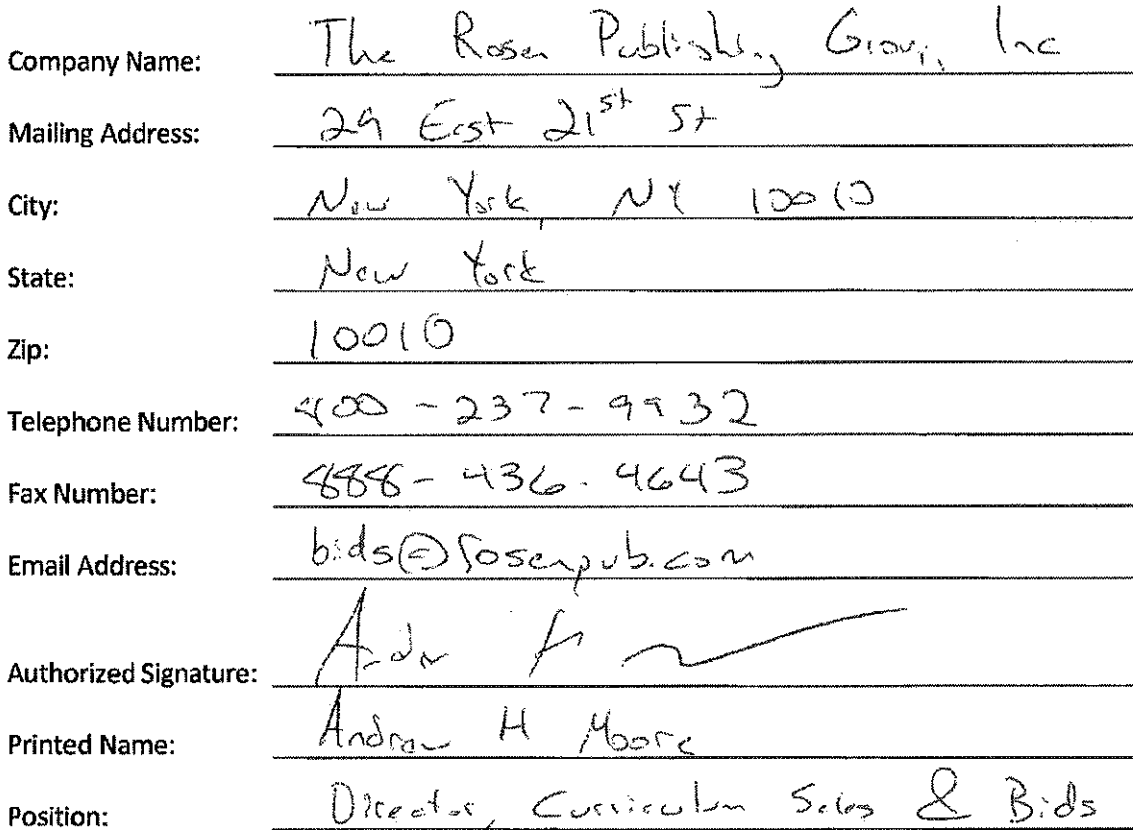 Company Name: The Rosen Publishing Group, Inc
Mailing Address: 29 East 21st St
City: New York, NY 10010
State: New York
Zip: 10010
Telephone Number: 800-237-9932
Fax Number: 888-436-4643
Email Address: bids@rosenpub.com
Authorized Signature: Andr H
Printed Name: Andrew H Moore
Position: Director, Curriculum Sales & Bids